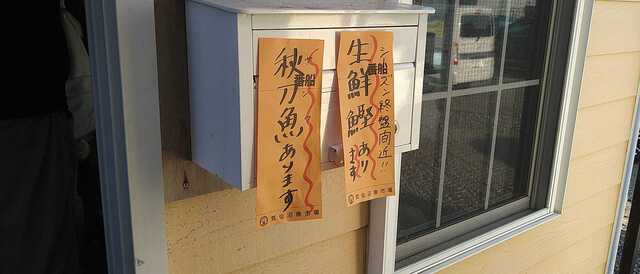 シーズン終盤間近!!
一番船
生鮮鰹あります
気仙沼魚市場
サンマ
一番船
秋刀魚あります
気仙沼魚市場